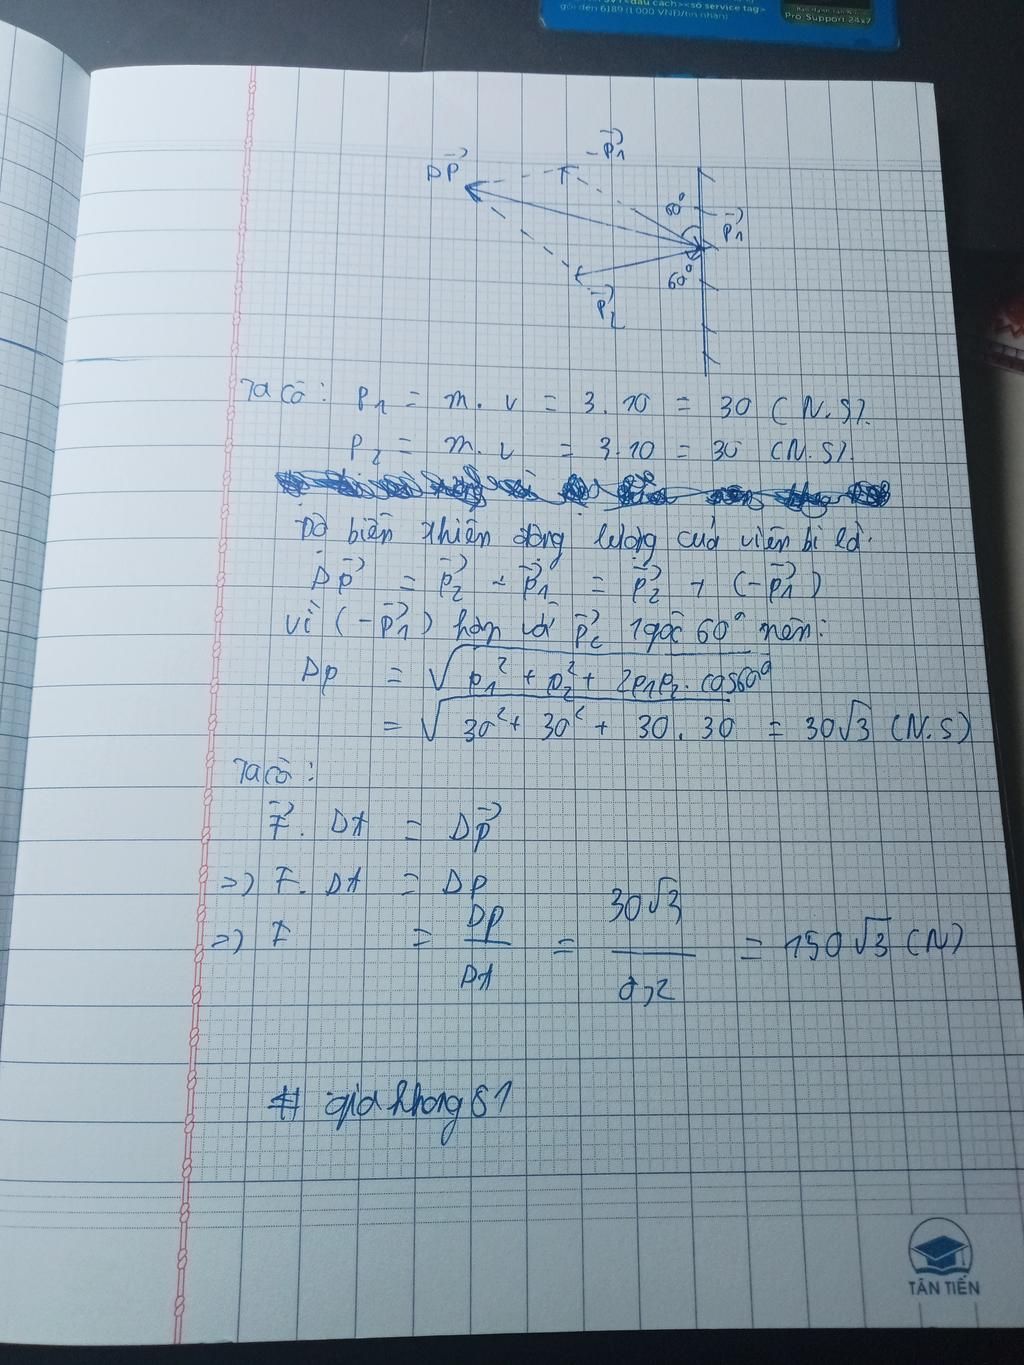 SVT<dấu cách><số service tag>
gửi đến 6189 (1 000 VNĐ/tin nhắn)
Pro Support 24x7
-p₁⃗
Δp⃗
60°
p₁⃗
60°
p₂⃗
Ta có: p₁ = m.v = 3.10 = 30 (N.S).
p₂ = m.v = 3.10 = 30 (N.S).
Độ biến thiên động lượng của viên bi là:
Δp⃗ = p₂⃗ - p₁⃗ = p₂⃗ + (-p₁⃗)
Vì (-p₁⃗) hợp với p₂⃗ 1 góc 60° nên:
Δp = √(p₁² + p₂² + 2p₁p₂.cos60°)
= √(30² + 30² + 30.30) = 30√3 (N.S)
Ta có:
F⃗. Δt = Δp⃗
=> F. Δt = Δp
=> F = Δp/Δt = 30√3/0,2 = 150√3 (N)
# giakhong81
TÂN TIẾN